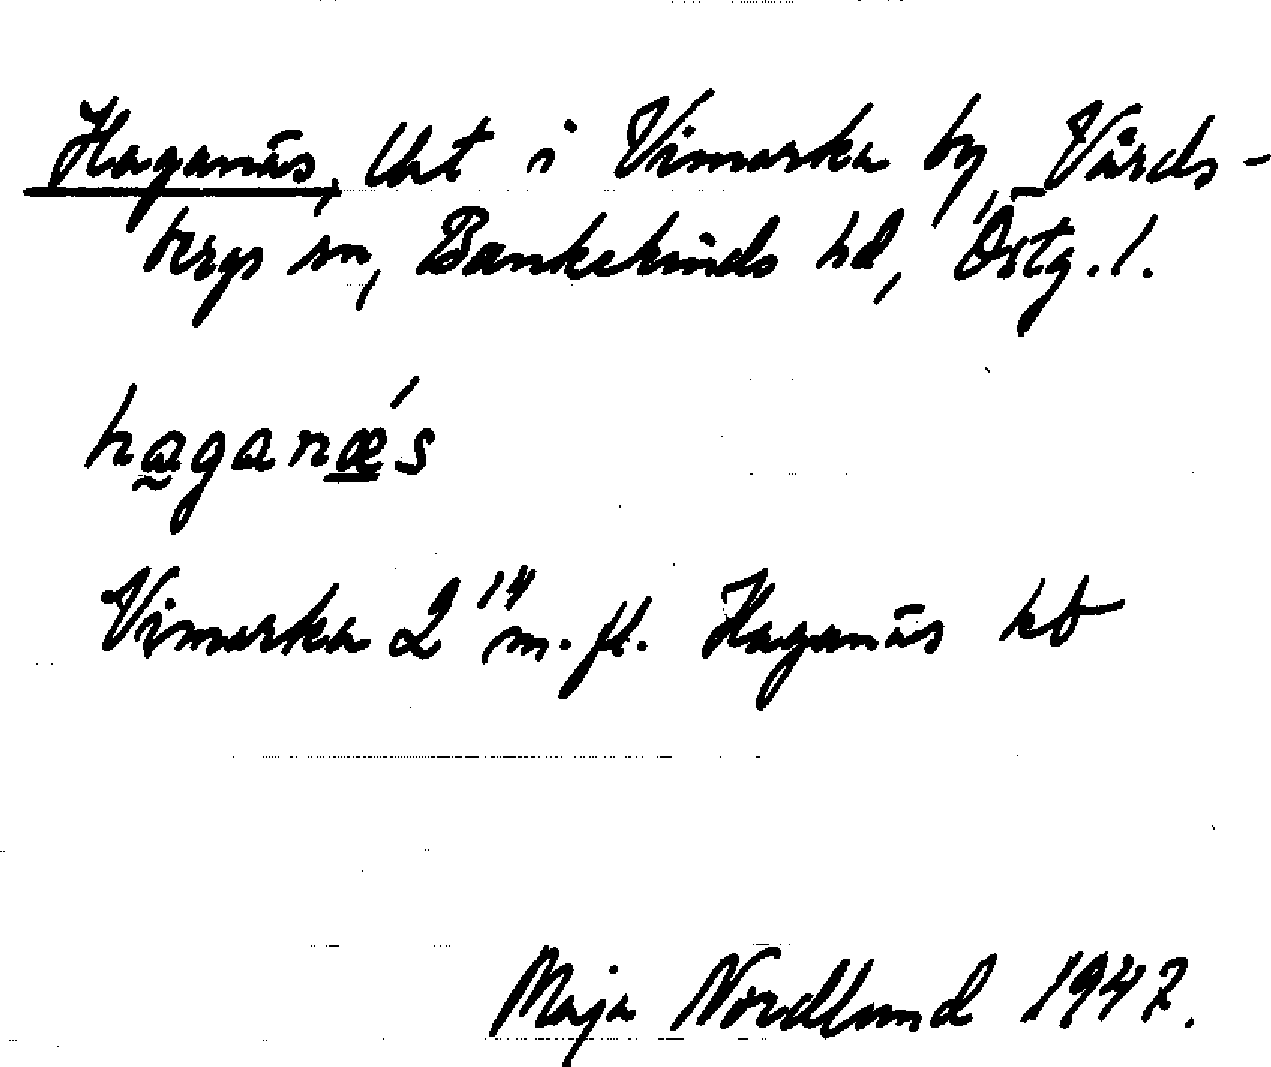 Haganäs, lht i Vimarka by, Vårds-
bergs sn, Bankekinds hd, Östg. l.
haganǽs
Vimarka 2¹⁴ m. fl. Haganäs hb
Maja Nordlund 1947.